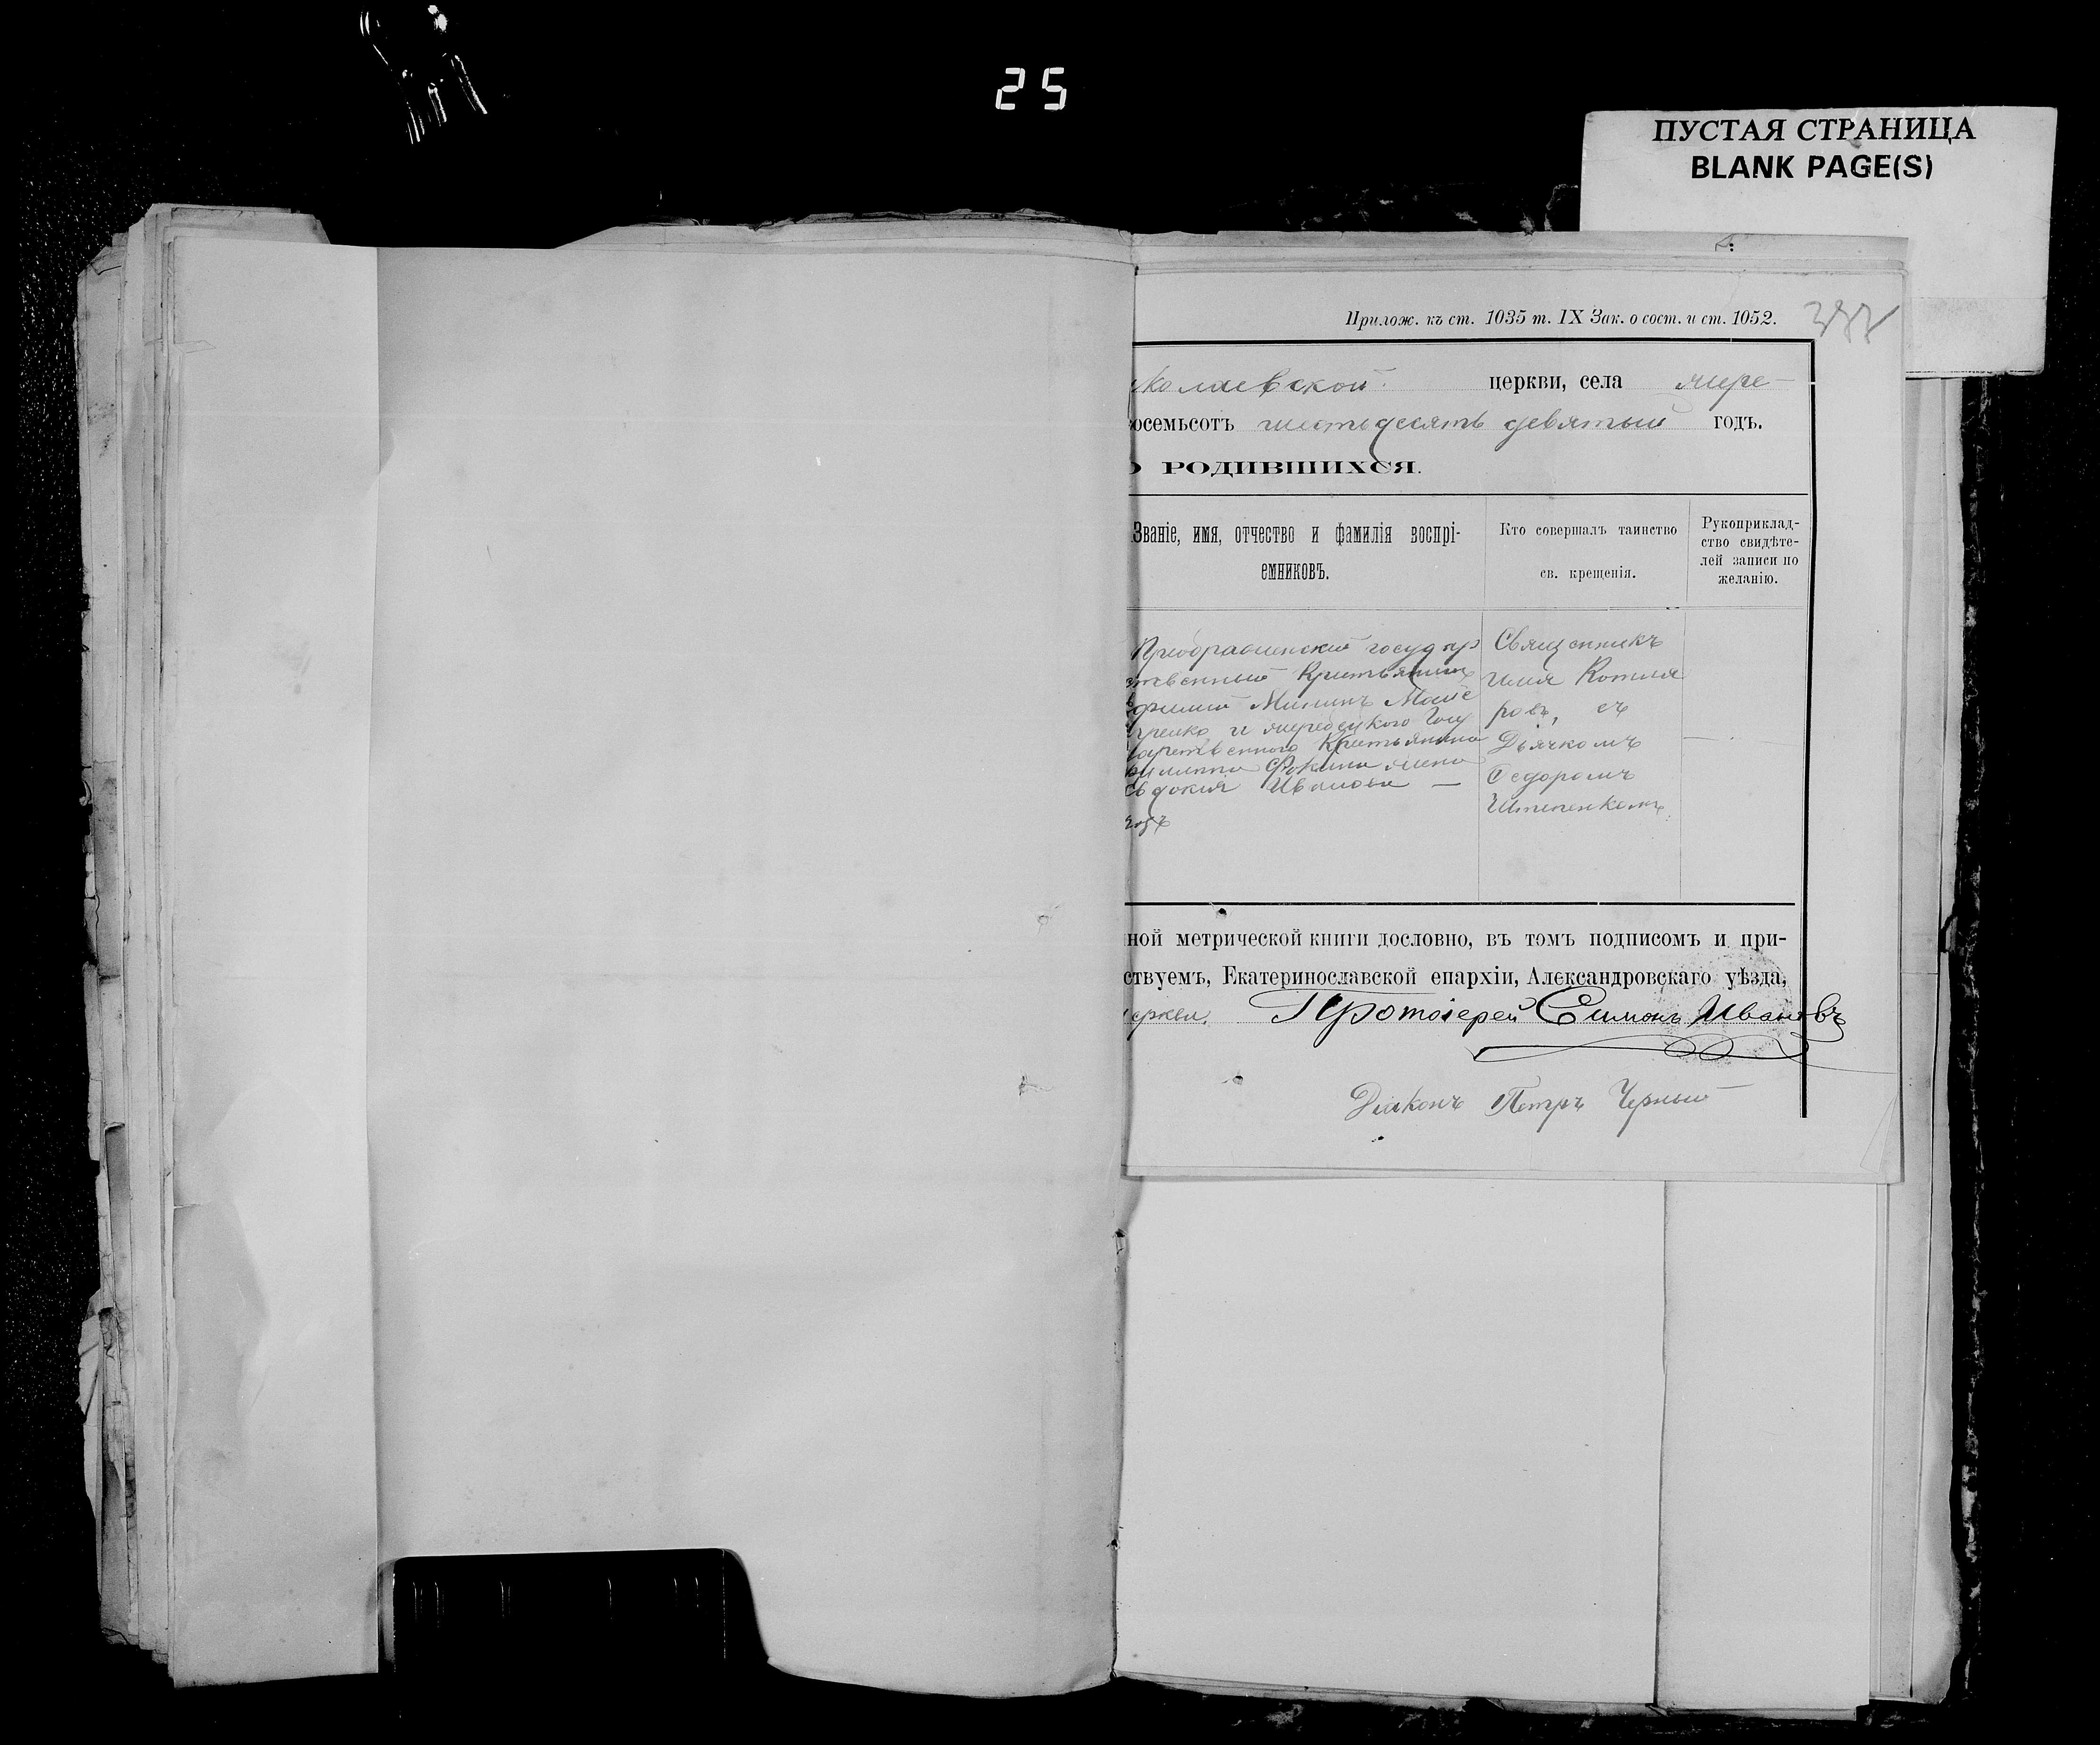 25
ПУСТАЯ СТРАНИЦА
BLANK PAGE(S)
Прилож. къ ст. 1035 т. IX Зак. о сост. и ст. 1052.
колаевской церкви, села жере-
восемьсотъ шестьдесятъ девятый годъ.
О РОДИВШИХСЯ.
Званіе, имя, отчество и фамилія воспрі-
емниковъ.
Кто совершалъ таинство
св. крещенія.
Рукоприклад-
ство свидѣте-
лей записи по
желанію.
Преображенский государ
ственный Крестьянинъ
Мининъ Мойс
и жеребецкого Госу
дарственного Крестьянина
Фокина жена
Евдокия Иванова —
Священникъ
Илия Котля
ровъ, съ
Дьячкомъ
Федоромъ
ной метрической книги дословно, въ томъ подписомъ и при-
ствуемъ, Екатеринославской епархіи, Александровскаго уѣзда,
церкви. Протоіерей Симонъ Ивановъ
Діаконъ Петръ Черный